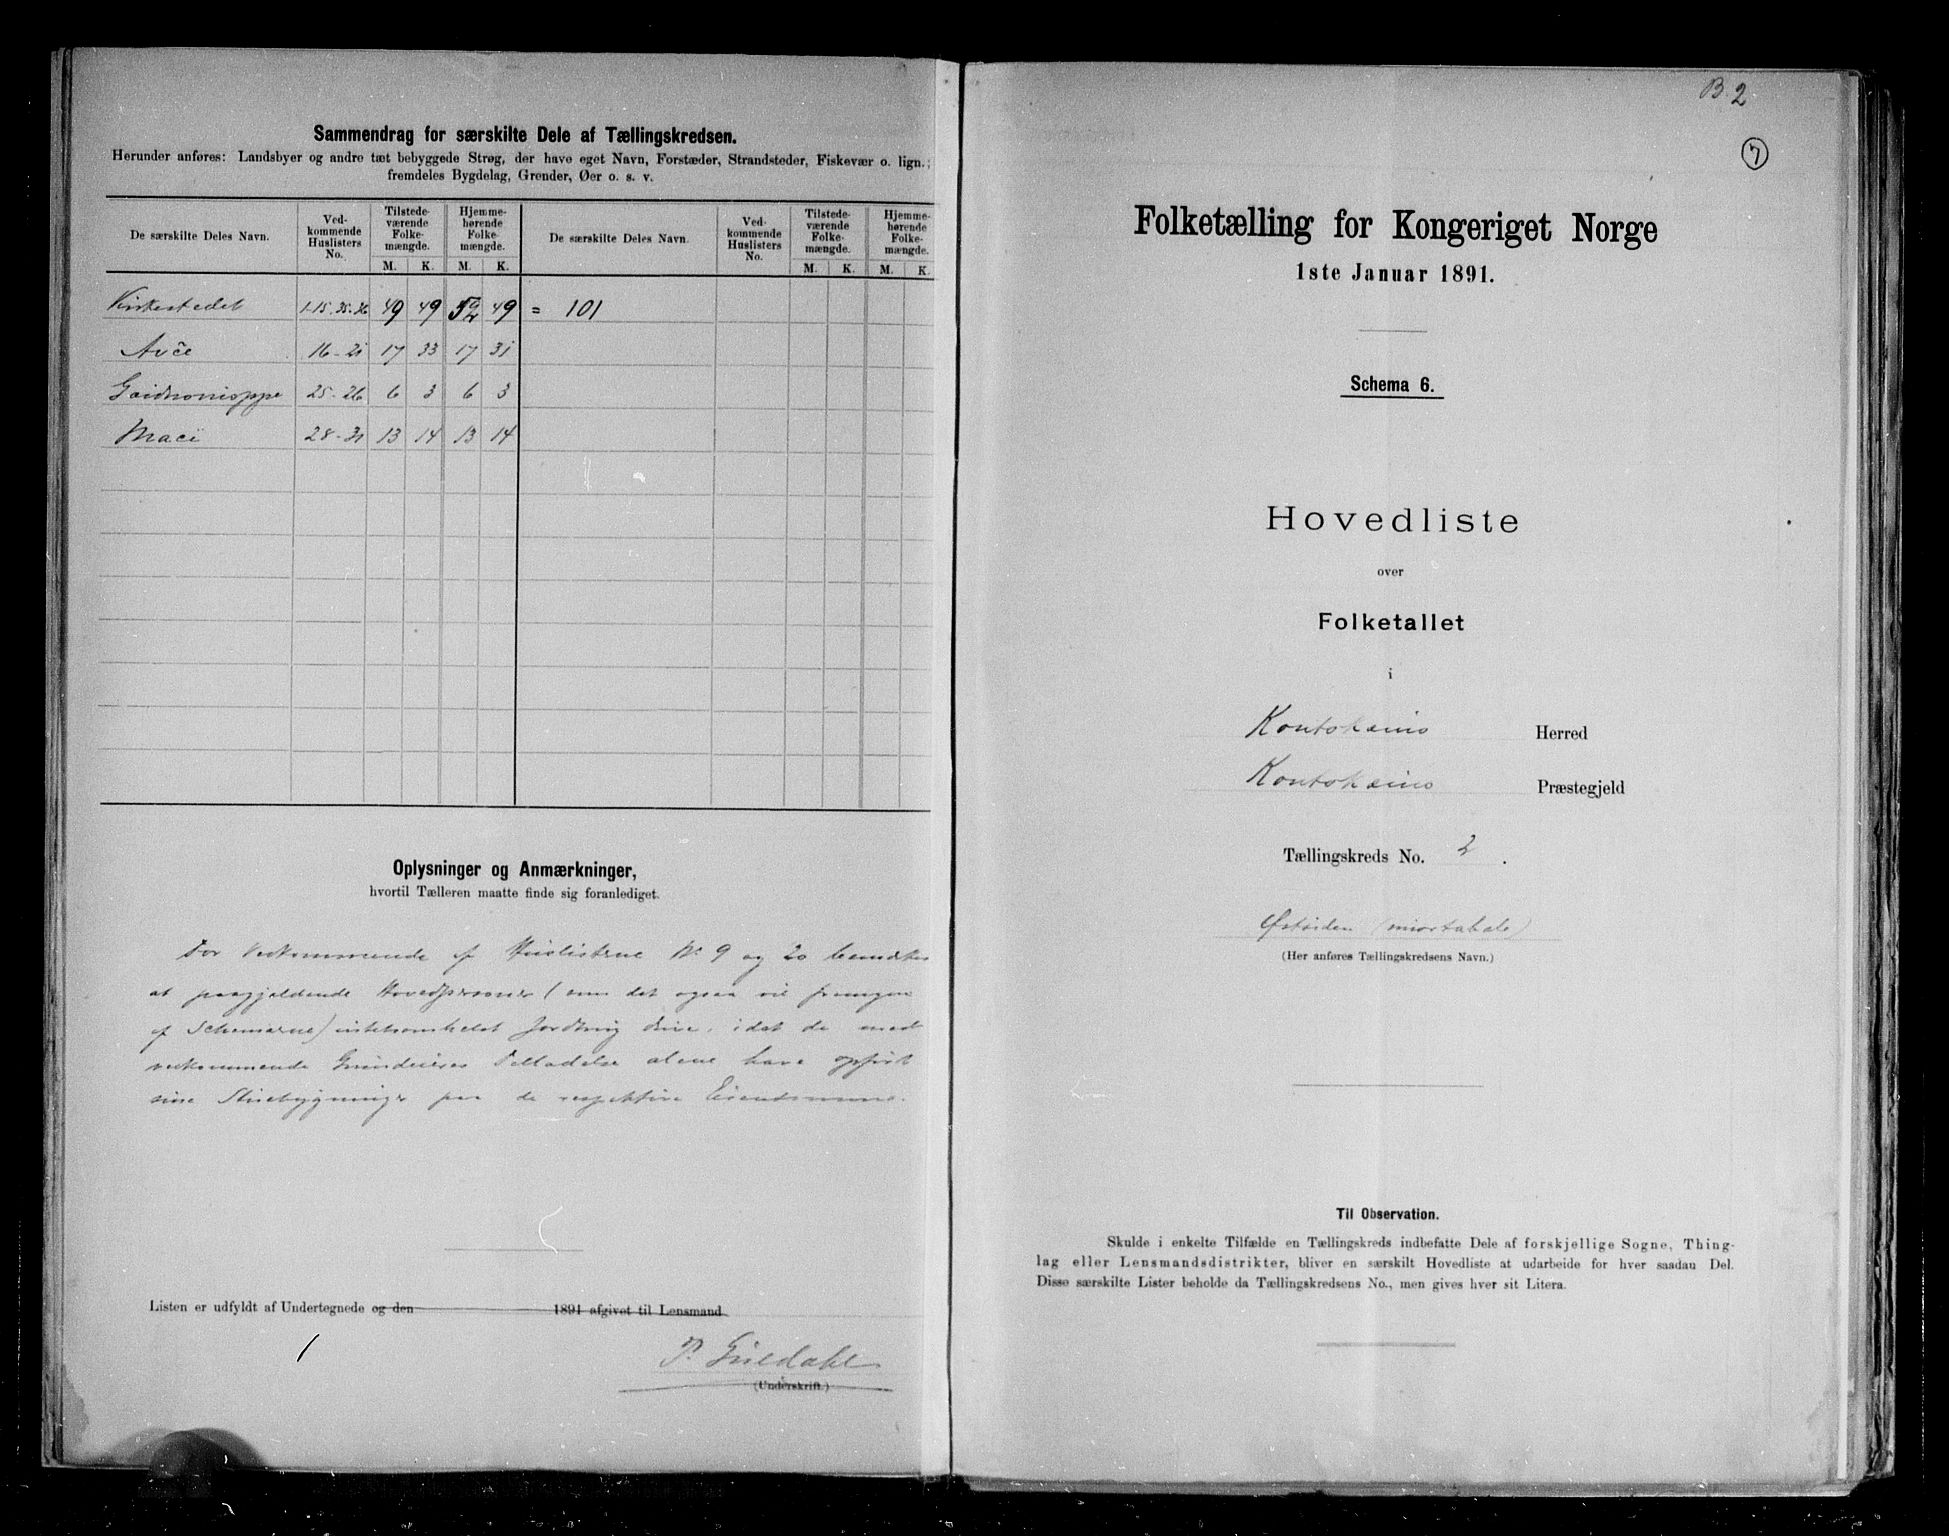 Sammendrag for særskilte Dele af Tællingskredsen.
Herunder anføres: Landsbyer og andre tæt bebyggede Strøg, der have eget Navn, Forstæder, Strandsteder, Fiskevær o. lign.;
fremdeles Bygdelag, Grender, Øer o. s. v.
De særskilte Deles Navn. Ved-kommende Huslisters No. Tilstede-værende Folke-mængde. Hjemme-hørende Folke-mængde. De særskilte Deles Navn. Ved-kommende Huslisters No. Tilstede-værende Folke-mængde. Hjemme-hørende Folke-mængde.
M. K. M. K. M. K. M. K.
Kirkestedet 1-15. 35-36 49 49 52 49 = 101
Avče 16-21 17 33 17 31
25-26 6 3 6 3
28-31 13 14 13 14
Oplysninger og Anmærkninger,
hvortil Tælleren maatte finde sig foranlediget.
For Vedkommende af Huslisterne No 9 og 20 bemærkes
at paagjældende Hovedpersoner (som det ogsaa vil fremgaa
af Schemaerne) intetsomhelst Jordbrug drive, idet de med
vedkommende Grundeieres Tilladelse alene have opført
sine Stuebygninger paa de respektive Eiendomme.
Listen er udfyldt af Undertegnede og den 1891 afgivet til Lensmand
P.
(Underskrift.)
B. 2
7
Folketælling for Kongeriget Norge
1ste Januar 1891.
Schema 6.
Hovedliste
over
Folketallet
i
Koutokæino Herred
Koutokæino Præstegjeld
Tællingskreds No. 2.
Østsiden
(Her anføres Tællingskredsens Navn.)
Til Observation.
Skulde i enkelte Tilfælde en Tællingskreds indbefatte Dele af forskjellige Sogne, Thing-
lag eller Lensmandsdistrikter, bliver en særskilt Hovedliste at udarbeide for hver saadan Del.
Disse særskilte Lister beholde da Tællingskredsens No., men gives hver sit Litera.